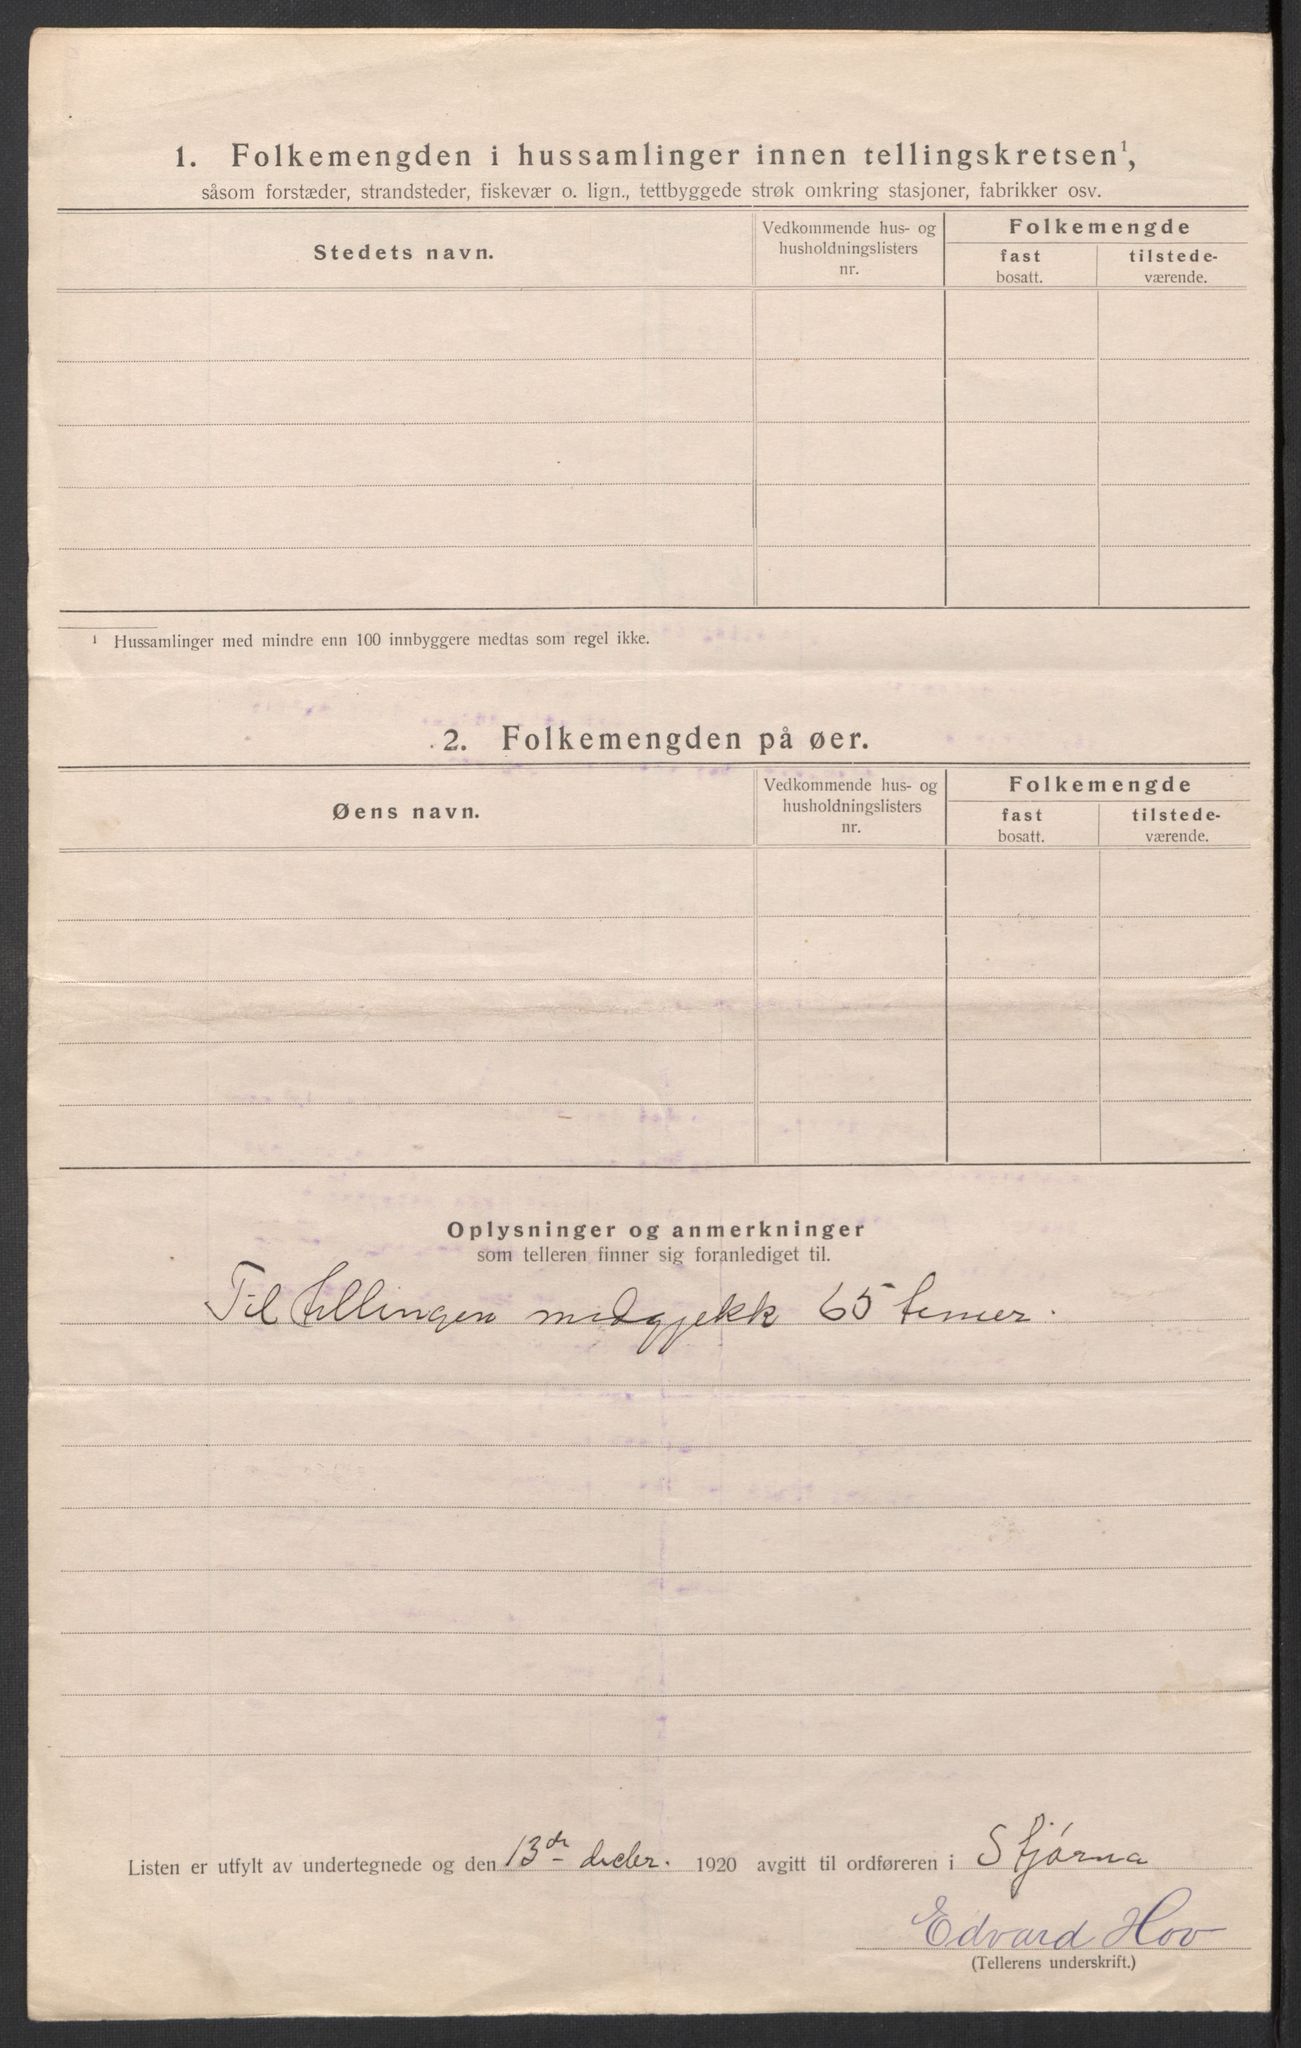 1. Folkemengden i hussamlinger innen tellingskretsen¹,
såsom forstæder, strandsteder, fiskevær o. lign., tettbyggede strøk omkring stasjoner, fabrikker osv.
Stedets navn.
Vedkommende hus- og
husholdningslisters
nr.
Folkemengde
fast
bosatt.
tilstede-
værende.
¹ Hussamlinger med mindre enn 100 innbyggere medtas som regel ikke.
2. Folkemengden på øer.
Øens navn.
Vedkommende hus- og
husholdningslisters
nr.
Folkemengde
fast
bosatt.
tilstede-
værende.
Oplysninger og anmerkninger
som telleren finner sig foranlediget til.
Til tellingen medgjekk 65 timer.
Listen er utfylt av undertegnede og den 13de decbr. 1920 avgitt til ordføreren i Stjørna
Edvard Hov
(Tellerens underskrift.)